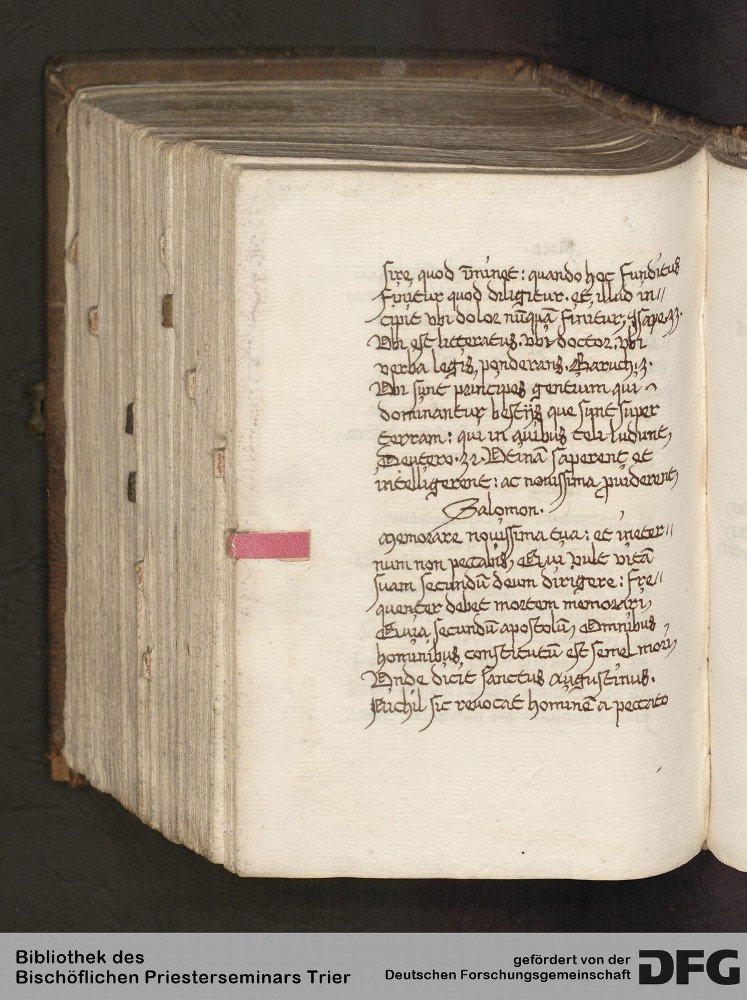 sire quod īminet: quando hoc funditus
finitur quod diligitur. et illud in//
cipit vbi dolor nūquā finitur, Isaye.33.
Vbi est litteratus. vbi doctor, vbi
verba legis, ponderans. Baruch.3.
Vbi sunt principes gentium qui
dominantur bestijs que sunt super
terram: qui in auibus celi ludunt,
Deutero.32. Vtinā saperent et
intelligerent: ac nouissima puiderent,
Salomon.
Memorare nouissima tua: et ineter//
num non peccabis, Quia vult vitā
suam secundū deum dirigere: fre//
quenter debet mortem memorari,
Quia secundū apostolū, Omnibus,
hominibus, constitutū est semel mori,
Vnde dicit sanctus Augustinus.
Nichil sic reuocat hominē a peccato
Bibliothek des
Bischöflichen Priesterseminars Trier
gefördert von der
Deutschen Forschungsgemeinschaft
DFG